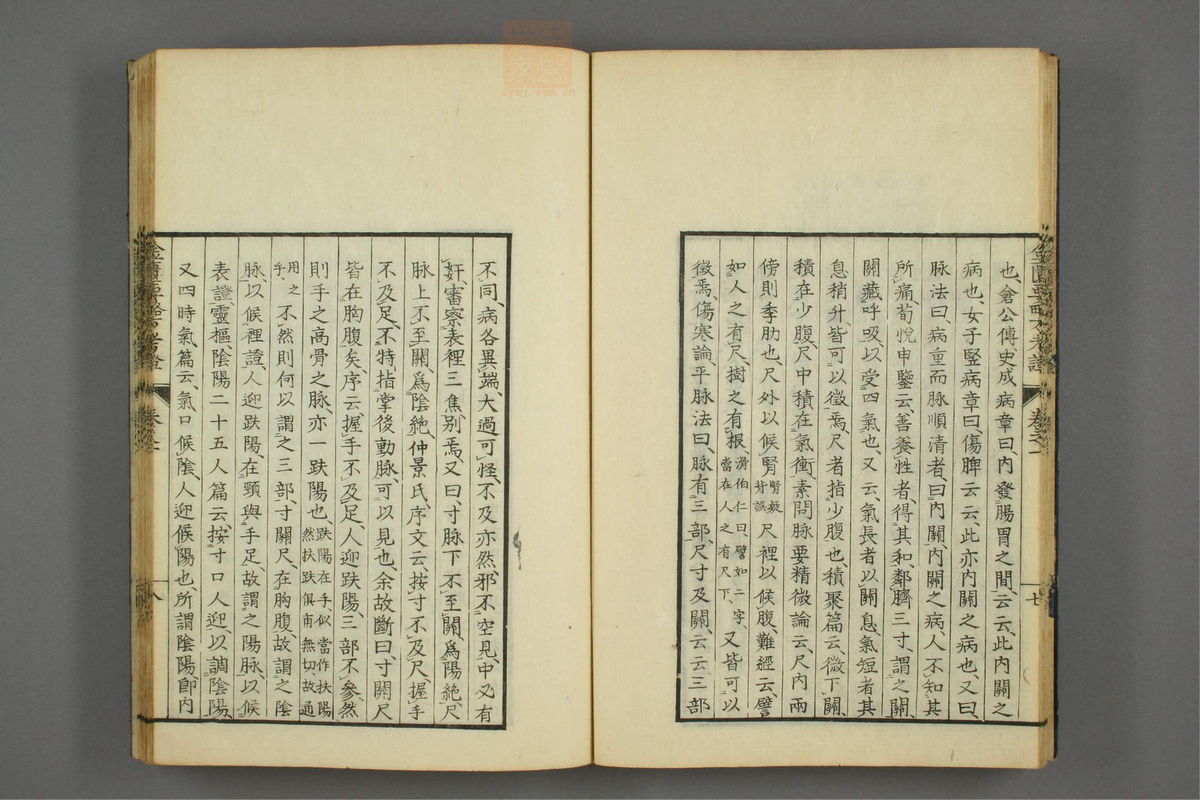 也、倉公傳史、成病章曰、內發腸胃之間、云云、此內關之
病也、女子竪病章曰、傷脾云云、此亦內關之病也、又曰、
脉法曰、病重而脉順清者、曰內關、內關之病、人不知其
所痛、荀悅申鑒云、善養性者、得其和、鄰臍三寸、謂之關、
關藏呼吸以受四氣也、又云、氣長者以關息、氣短者其
息稍升、皆可以徵焉、尺者指少腹也、積聚篇云、微下關、
積在少腹、尺中積在氣衝、素問脉要精微論云、尺內兩
傍則季肋也、尺外以候腎、尺裡以候腹、難經云、譬
如人之有尺、樹之有根、滑伯仁曰、譬如二字、當在人之有尺下、又皆可以
徵焉、傷寒論、平脉法曰、脉有三部、尺寸及關、云云、三部
不同、病各異端、大過可怪、不及亦然、邪不空見、中必有
奸、審察表裡、三焦別焉、又曰、寸脉下不至關、爲陽絶、尺
脉上不至關、爲陰絶、仲景氏、序文云、按寸不及尺、握手
不及足、不特指掌後動脉、可以見也、余故斷曰、寸關尺
皆在胸腹矣、序云、握手不及足、人迎趺陽、三部不參、然
則手之高骨之脉、亦一趺陽也、趺陽在手、似當作扶陽、然扶趺俱甫無切、故通
用之手、不然則何以謂之三部、寸關尺、在胸腹、故謂之陰
脉、以候裡證、人迎趺陽、在頸與手足、故謂之陽脉、以候
表證、靈樞、陰陽二十五人篇云、按寸口人迎、以調陰陽、
又四時氣篇云、氣口候陰、人迎候陽也、所謂陰陽卽內
金匱要略方考證 卷之一 七
金匱要略方考證 卷之一 八